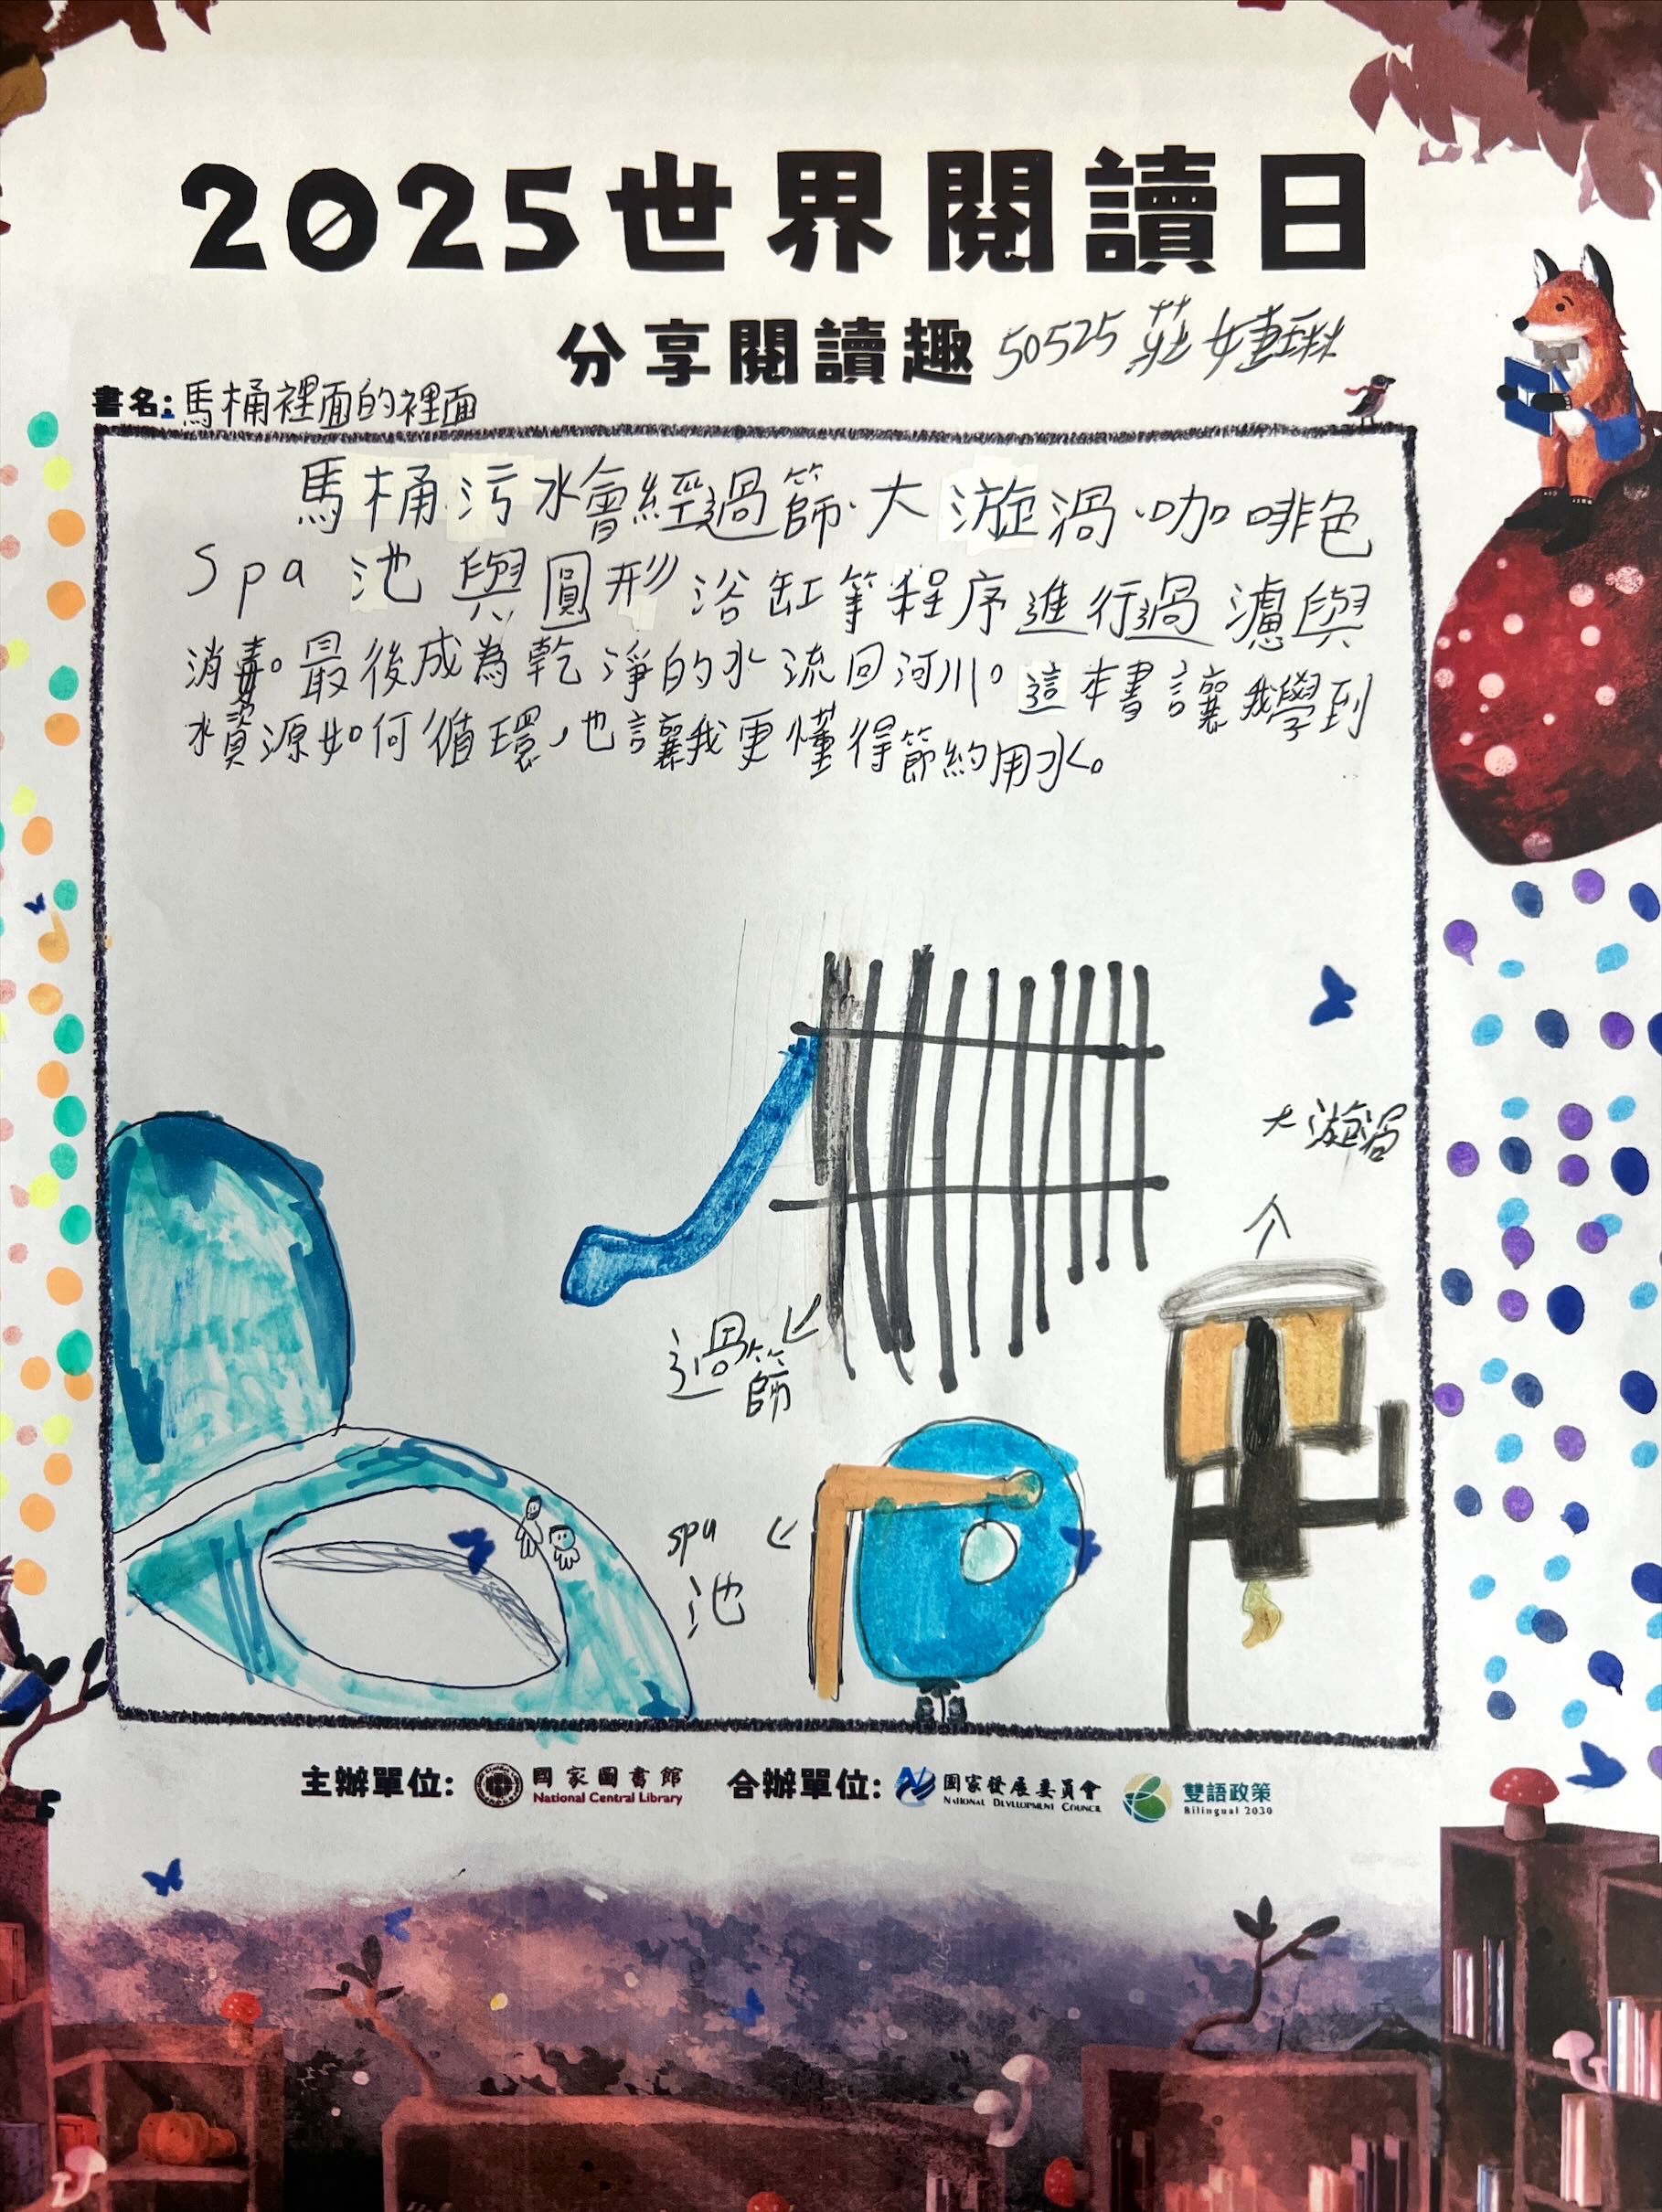 2025世界閱讀日
分享閱讀趣 50525 莊婕琳
書名:馬桶裡面的裡面
馬桶污水會經過篩、大漩渦、咖啡色
Spa 池與圓形浴缸等程序進行過濾與
消毒。最後成為乾淨的水流回河川。這本書讓我學到
水資源如何循環,也讓我更懂得節約用水。
大漩渦
過篩
spa
池
主辦單位: 國家圖書館 合辦單位: 國家發展委員會 雙語政策
National Central Library NATIONAL DEVELOPMENT COUNCIL Bilingual 2030